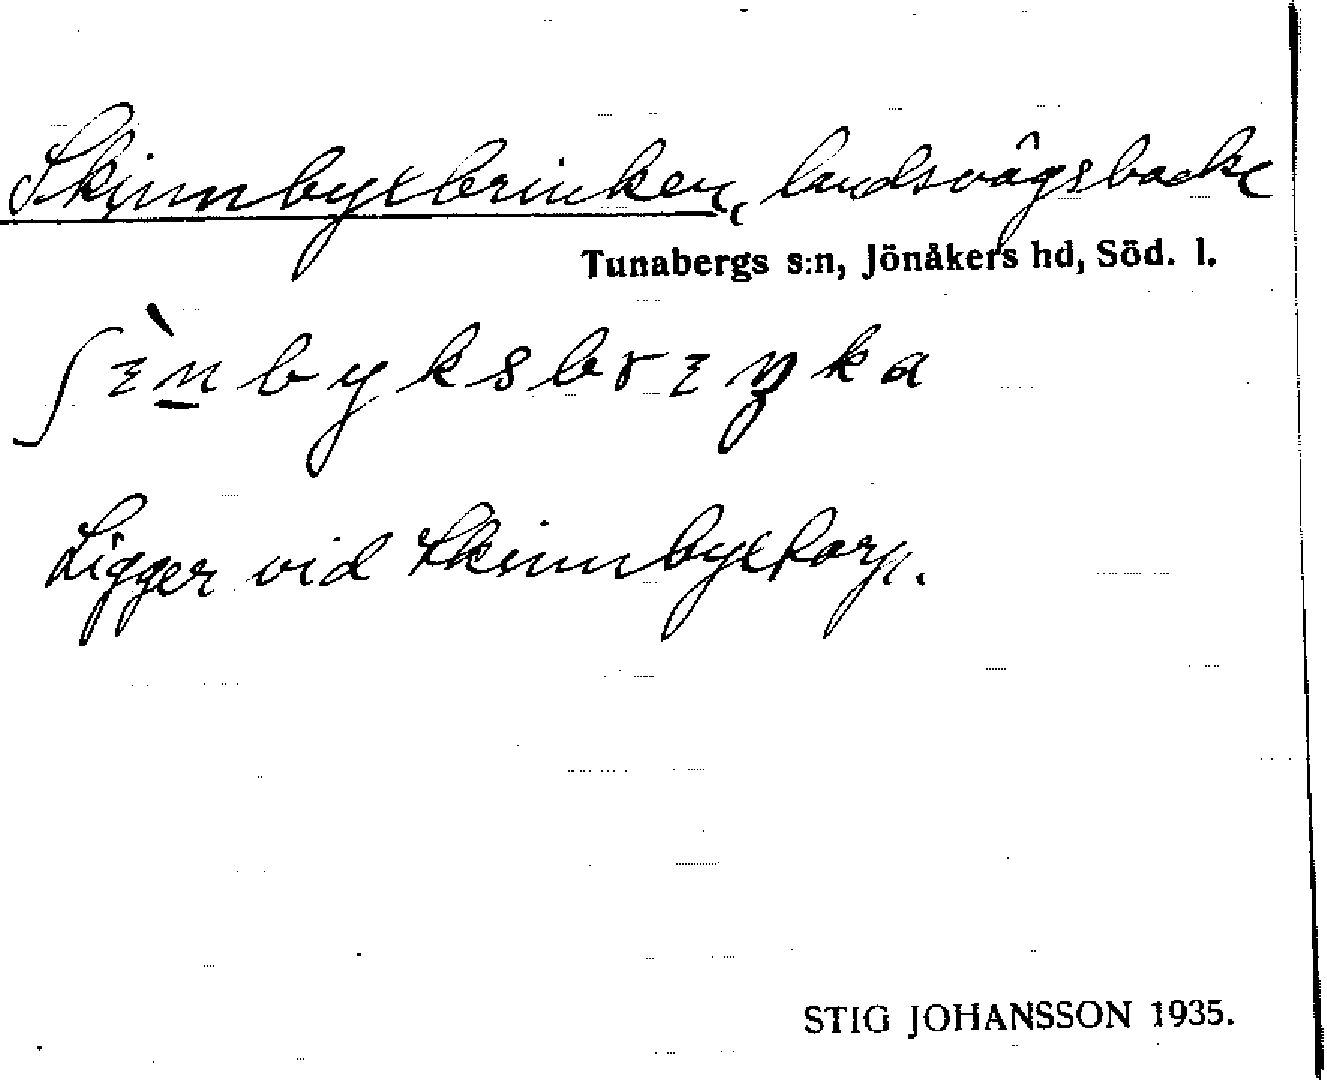 Skinnbyxbrinken, landsvägsbacke
Tunabergs s:n, Jönåkers hd, Söd. l.
Ligger vid Skinnbyxtorp.
STIG JOHANSSON 1935.